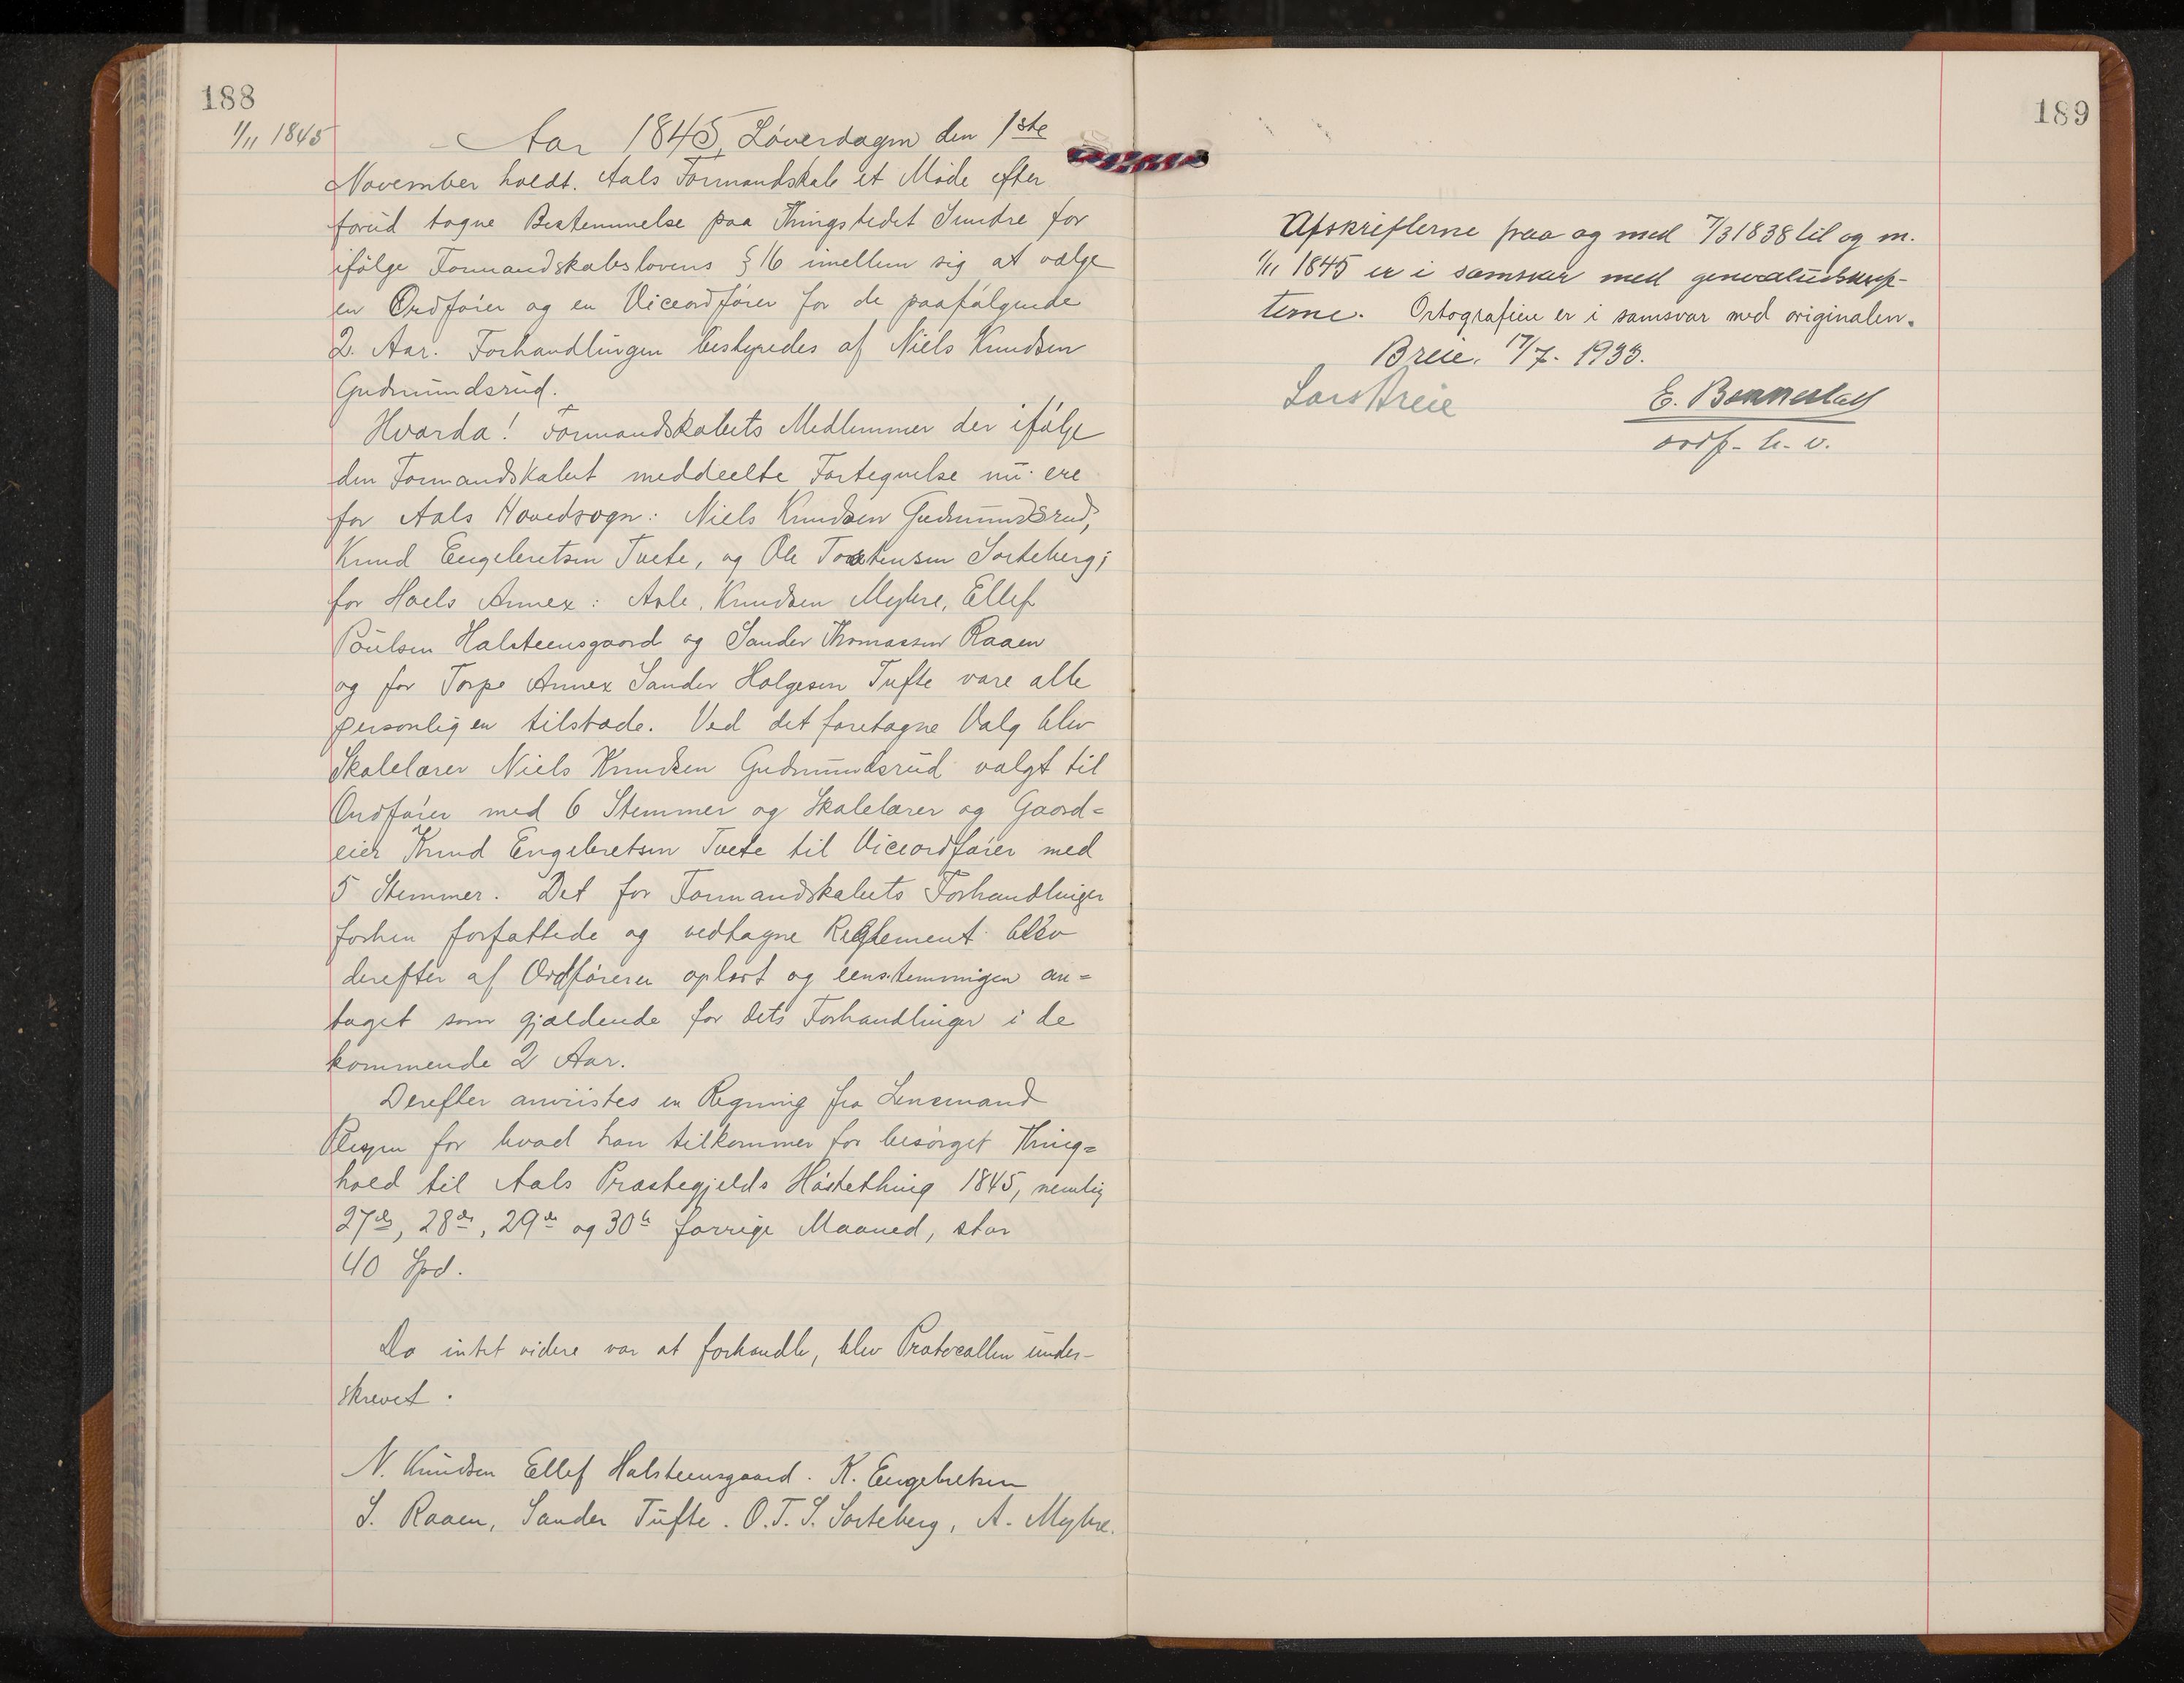 188
1/11 1845
Aar 1845, Løverdagen den 1ste
November holdt Aals Formandskab et Møde efter
forud tagne Bestemmelse paa Thingstedet Sundre for
ifølge Formandskabslovens § 16 imellem sig at vælge
en Ordfører og en Viceordfører for de paafølgende
2 Aar. Forhandlingen bestyredes af Niels Knudsen
Gudmundsrud.
Hvorda! Formandskabets Medlemmer der ifølge
den Formandskabet meddeelte Fortegnelse nu ere
for Aals Hovedsogn: Niels Knudsen Gudmundsrud,
Knud Engebretsen Tvete, og Ole Torstensen Sorteberg;
for Hols Annex: Asle Knudsen Myhre, Ellef
Poulsen Halsteensgaard og Sander Thomassen Raaen
og for Torpe Annex Sander Holgesen Tufte vare alle
personligen tilstæde. Ved det foretagne Valg blev
Skolelærer Niels Knudsen Gudmundsrud valgt til
Ordfører med 6 Stemmer og Skolelærer og Gaard=
eier Knud Engebretsen Tvete til Viceordfører med
5 Stemmer. Det for Formandskabets Forhandlinger
forhen forfattede og vedtagne Reglement blev
derefter af Ordføreren oplæst og eenstemmigen an=
taget som gjældende for dets Forhandlinger i de
kommende 2 Aar.
Derefter anviistes en Regning fra Lensmand
for hvad han tilkommer for besørget Thing=
hold til Aals Præstegjelds Høstething 1845, nemlig
27de, 28de, 29de og 30te forrige Maaned, stor
40 Spd.
Da intet videre var at forhandle, blev Protocollen under-
skrevet.
N. Knudsen Ellef Halsteensgaard. K. Engebretsen
S. Raaen, Sander Tufte. O.T.S. Sorteberg, A. Myhre.
189
Afskrifterne fraa og med 7/3 1838 til og m.
1/11 1845 er i samsvar med generaludskrif-
terne. Ortografien er i samsvar med originalen.
Breie, 17/7. 1933.
Lars Breie
E.
ordf. h. v.